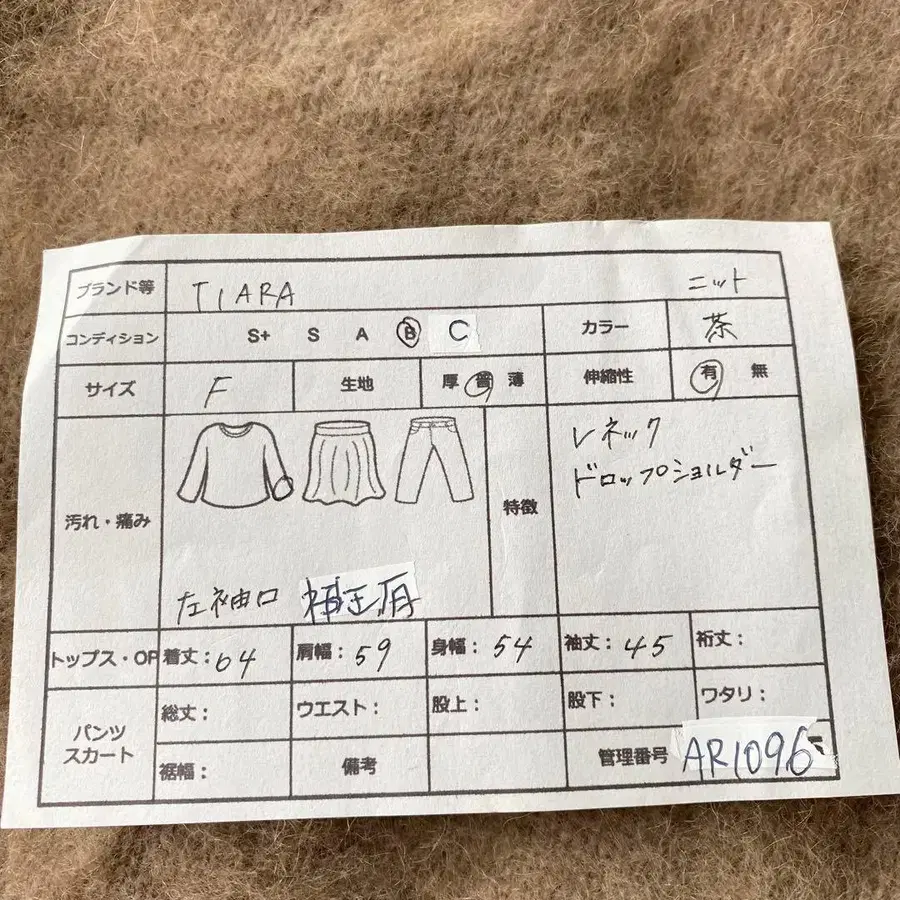 ブランド等 TIARA ニット
コンディション S+ S A B C カラー 茶
サイズ F 生地 厚 普 薄 伸縮性 有 無
汚れ・痛み 特徴
Vネック
ドロップショルダー
左袖口 補正有
トップス・OP 着丈:64 肩幅:59 身幅:54 袖丈:45 裄丈:
パンツ
スカート
総丈: ウエスト: 股上: 股下: ワタリ:
裾幅: 備考 管理番号 AR1096